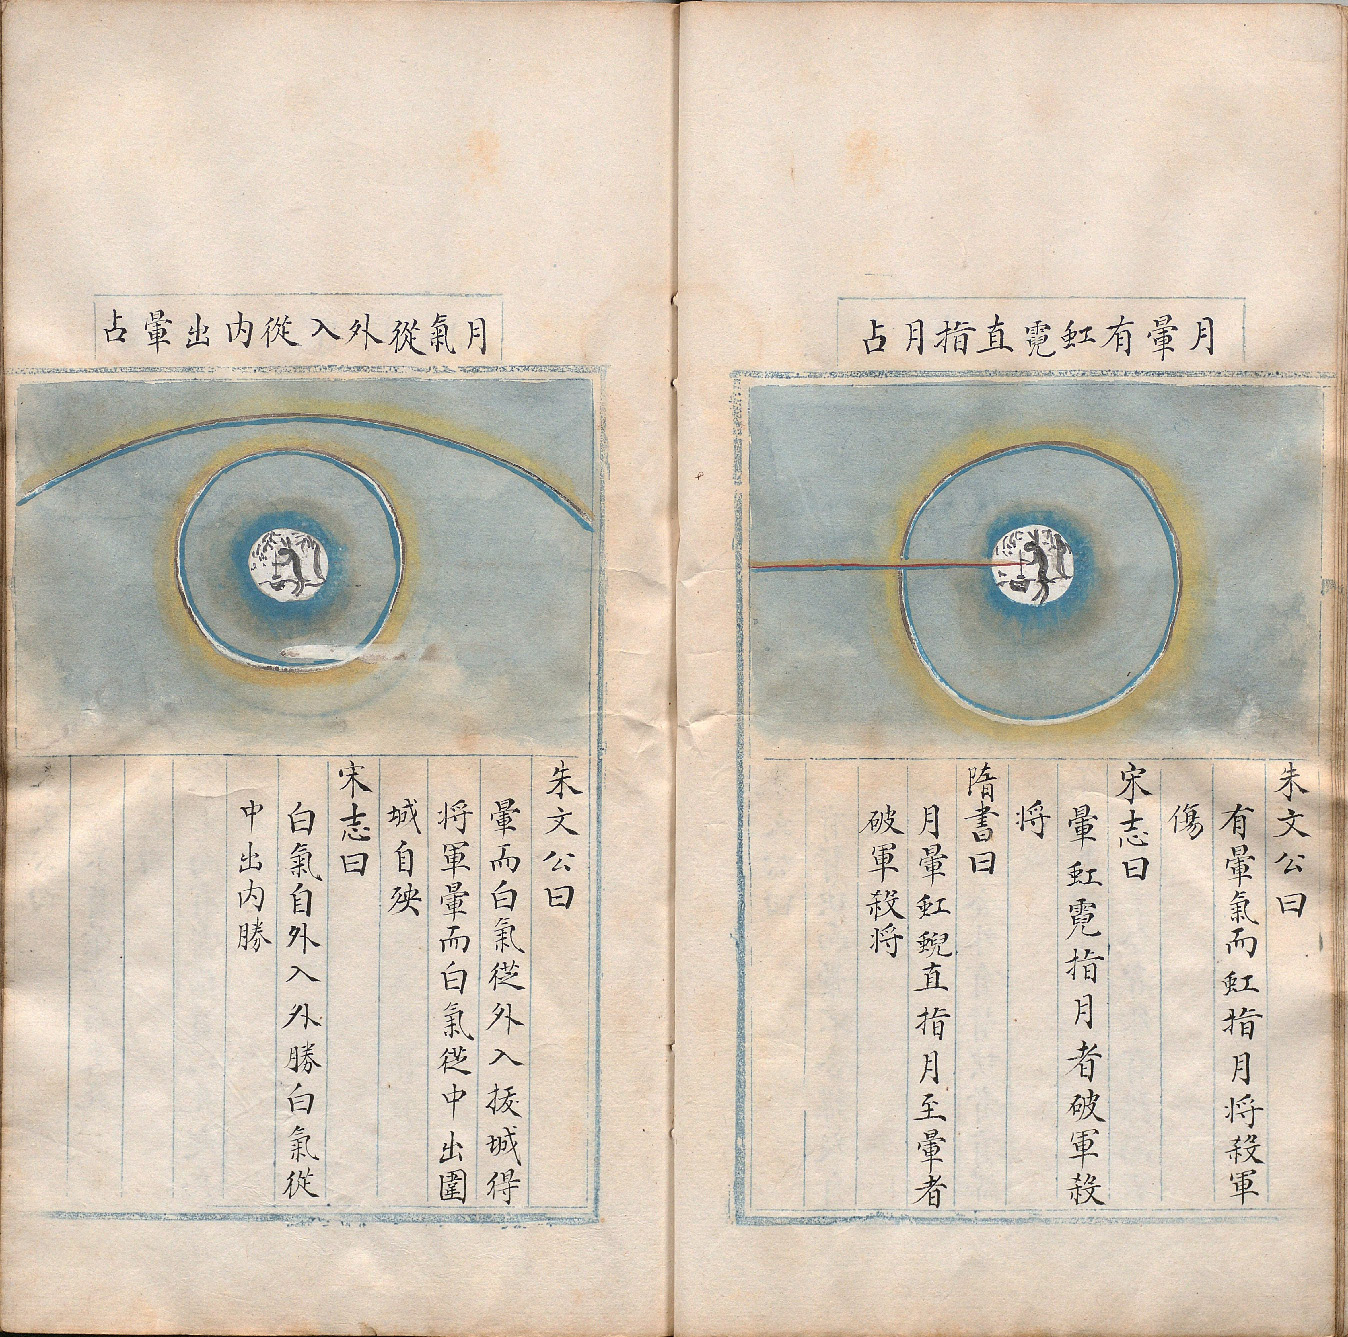 月暈有虹霓直指月占
朱文公曰
有暈氣而虹指月將殺軍
傷
宋志曰
暈虹霓指月者破軍殺
將
隋書曰
月暈虹蜺直指月至暈者
破軍殺將
月氣從外入從内出暈占
朱文公曰
暈而白氣從外入拔城得
將軍暈而白氣從中出圍
城自殃
宋志曰
白氣自外入外勝白氣從
中出内勝